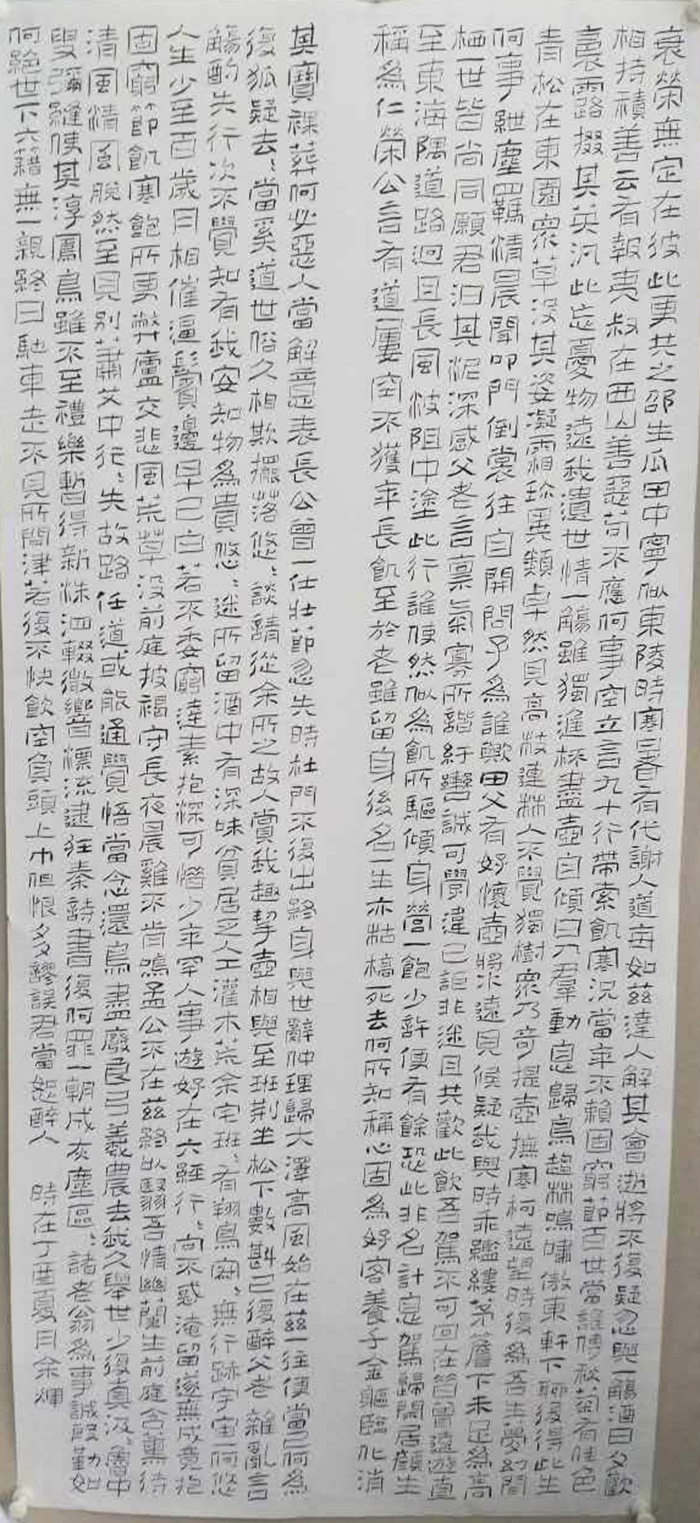 衰榮無定在彼此更共之邵生瓜田中寧似東陵時寒暑有代謝人道每如茲達人解其會逝將不復疑忽與一觴酒日夕歡
相持積善云有報夷叔在西山善惡苟不應何事空立言九十行帶索飢寒況當年不賴固窮節百世當誰傳秋菊有佳色
裛露掇其英汎此忘憂物遠我遺世情一觴雖獨進杯盡壺自傾日入羣動息歸鳥趨林鳴嘯傲東軒下聊復得此生
青松在東園眾草沒其姿凝霜殄異類卓然見高枝連林人不覺獨樹眾乃奇提壺撫寒柯遠望時復為吾生夢幻間
何事紲塵羈清晨聞叩門倒裳往自開問子為誰歟田父有好懷壺漿遠見候疑我與時乖繿縷茅簷下未足為高
栖一世皆尚同願君汩其泥深感父老言稟氣寡所諧紆轡誠可學違己詎非迷且共歡此飲吾駕不可回在昔曾遠遊直
至東海隅道路迥且長風波阻中塗此行誰使然似為飢所驅傾身營一飽少許便有餘恐此非名計息駕歸閒居顏生
稱為仁榮公言有道屢空不獲年長飢至於老雖留身後名一生亦枯槁死去何所知稱心固為好客養千金軀臨化消
其寶裸葬何必惡人當解意表長公曾一仕壯節忽失時杜門不復出終身與世辭仲理歸大澤高風始在茲一往便當已何為
復狐疑去々當奚道世俗久相欺擺落悠々談請從余所之故人賞我趣挈壺相與至班荊坐松下數斟已復醉父老雜亂言
觴酌失行次不覺知有我安知物為貴悠々迷所留酒中有深味貧居乏人工灌木荒余宅班々有翔鳥寂々無行跡宇宙一何悠
人生少至百歲月相催逼鬢邊早已白若不委窮達素抱深可惜少年罕人事遊好在六經行々向不惑淹留遂無成竟抱
固窮節飢寒飽所更弊廬交悲風荒草沒前庭披褐守長夜晨雞不肯鳴孟公不在茲終以翳吾情幽蘭生前庭含薰待
清風清風脫然至見別蕭艾中行々失故路任道或能通覺悟當念還鳥盡廢良弓羲農去我久舉世少復真汲々魯中
叟彌縫使其淳鳳鳥雖不至禮樂暫得新洙泗輟微響漂流逮狂秦詩書復何罪一朝成灰塵區々諸老翁為事誠殷勤如
何絕世下六籍無一親終日馳車走不見所問津若復不快飲空負頭上巾但恨多謬誤君當恕醉人 時在丁酉夏月余輝